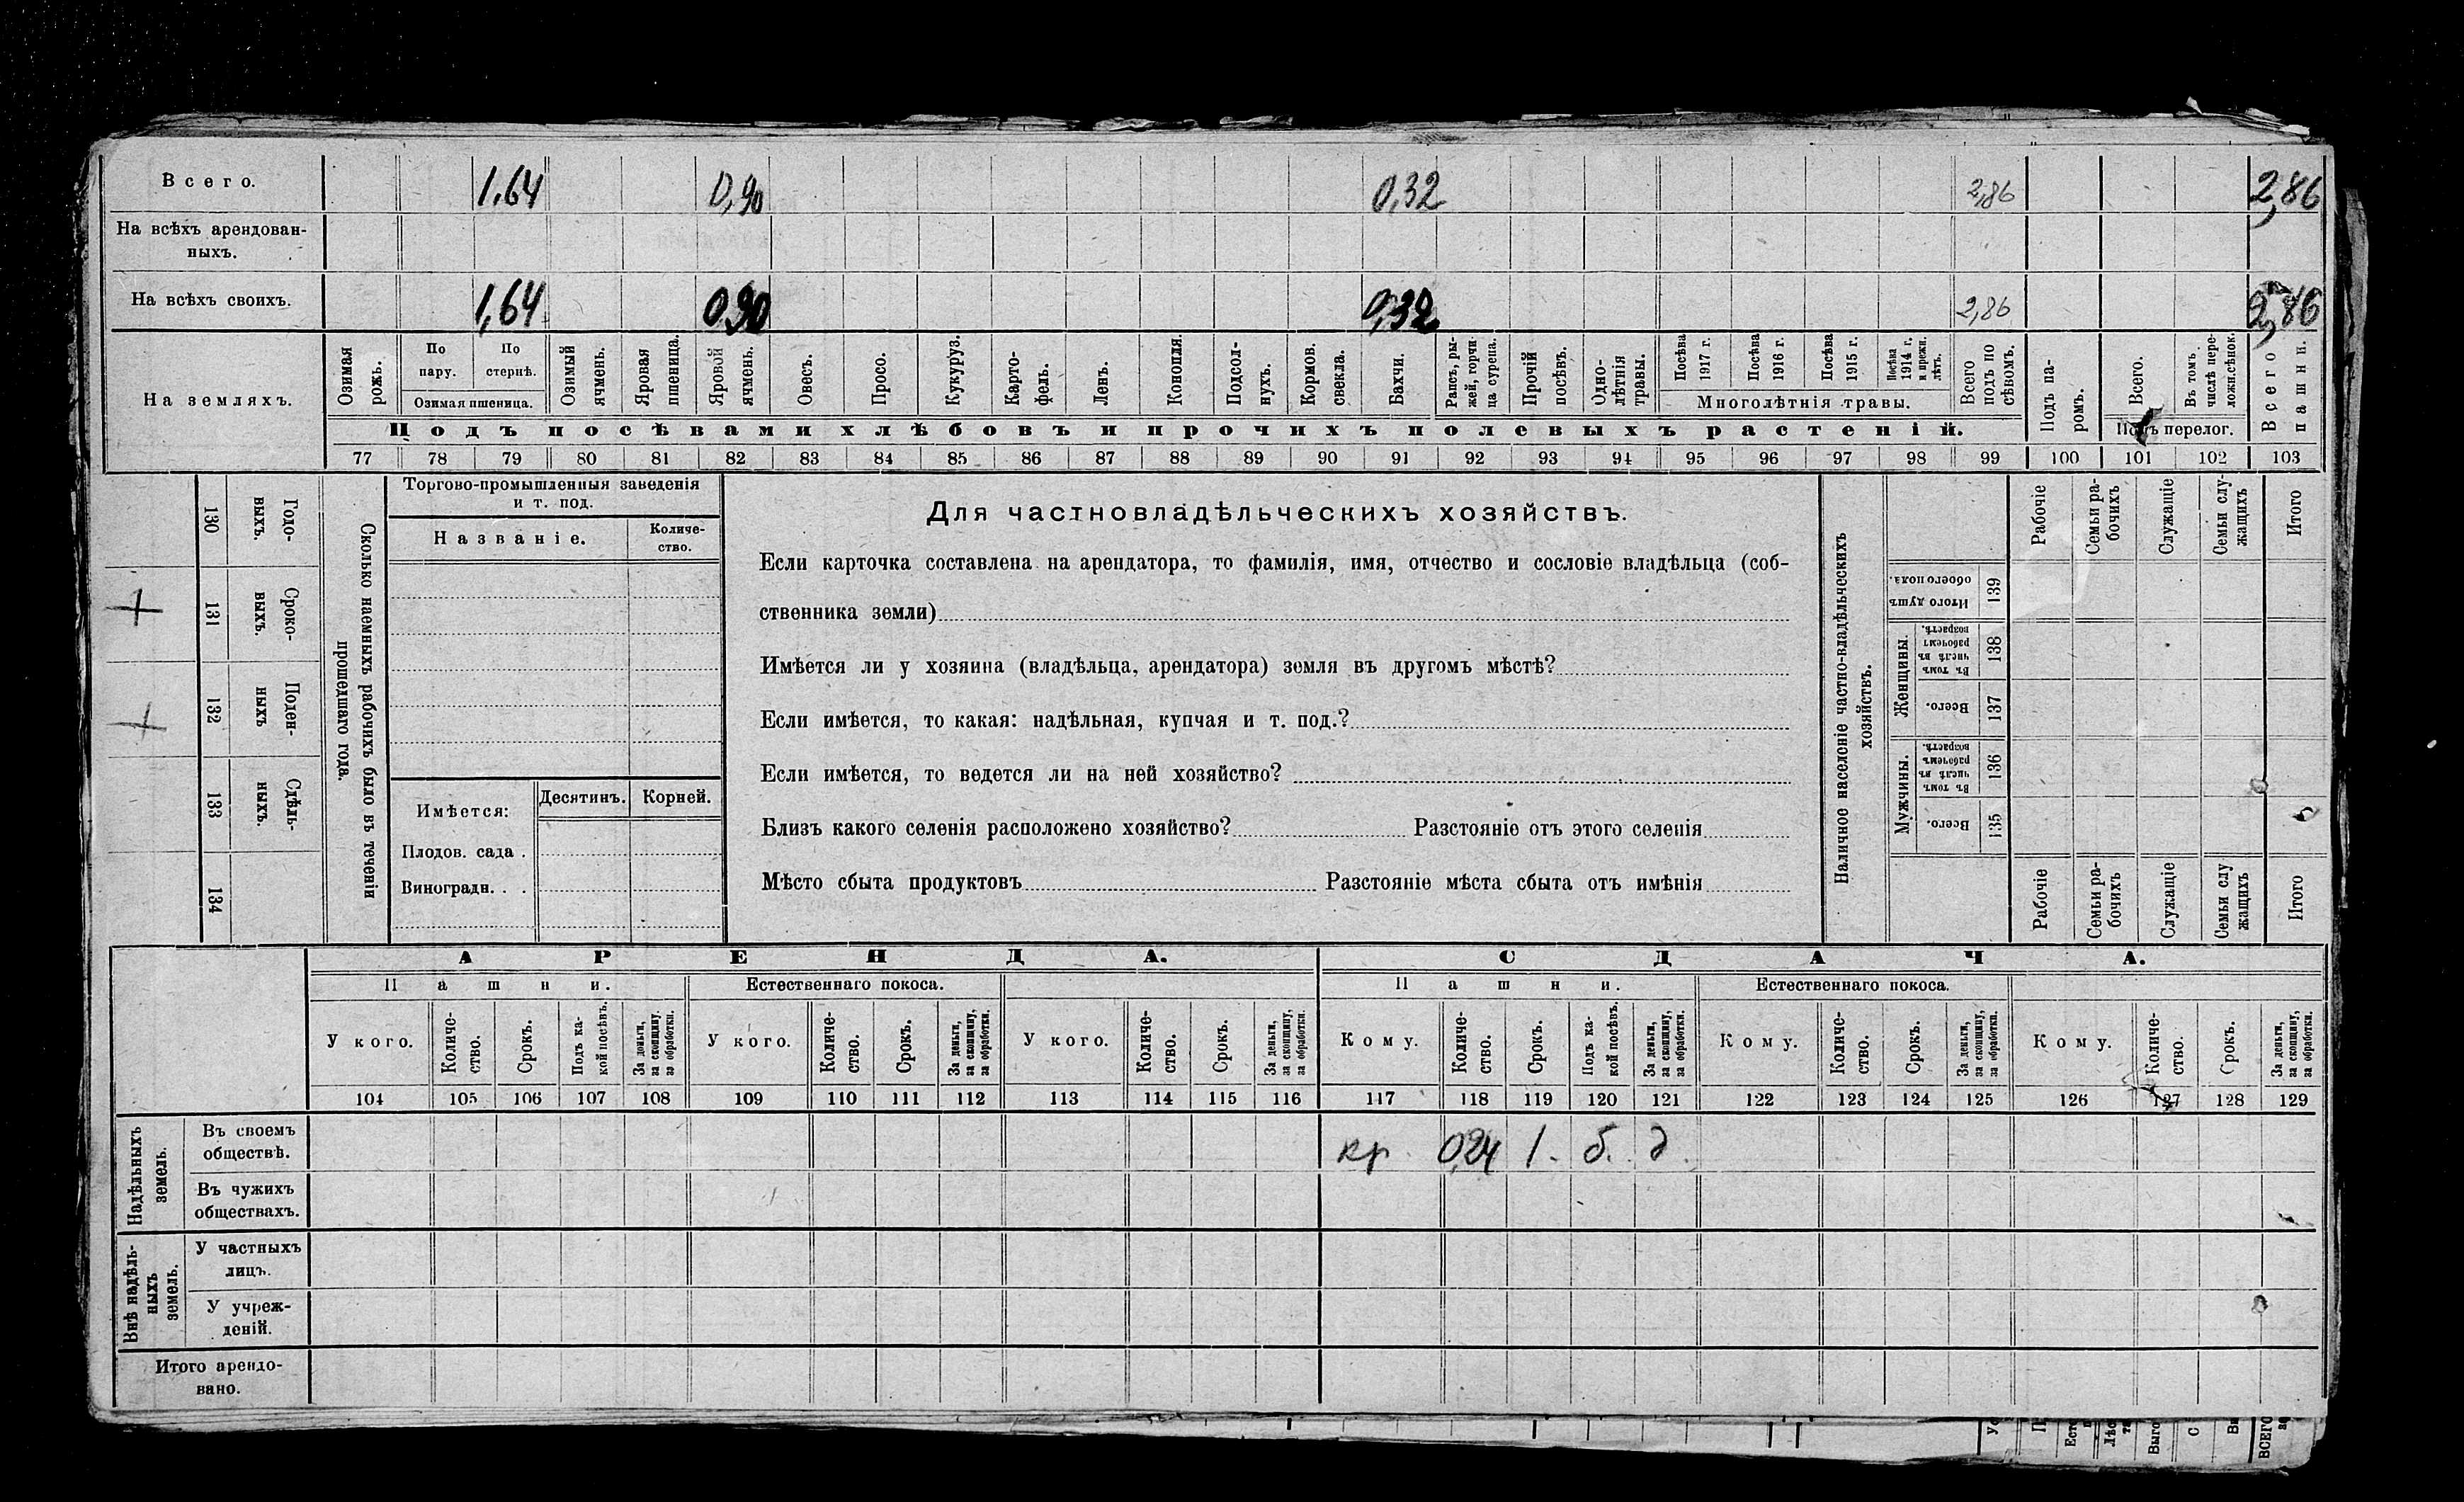 Всего. 1.64 0,90 0,32 2,86 2,86
На всѣхъ арендован-
ныхъ.
На всѣхъ своихъ. 1,64 0,90 0,32 2,86 2,86
На земляхъ.
Озимая рожь.
По пару.
По стернѣ.
Озимая пшеница.
Озимый ячмень.
Яровая пшеница.
Яровой ячмень.
Овесъ.
Просо.
Кукуруз.
Карто-
фель.
Ленъ.
Конопля.
Подсол-
нухъ.
Кормов. свекла.
Бахчи.
Рапсъ, ры-
жей, горчи-
ца сурепа.
Прочій посѣвъ.
Одно-
лѣтнія травы.
Посѣва 1917 г.
Посѣва 1916 г.
Посѣва 1915 г.
Посѣва 1914 г. и прежн. лѣтъ.
Многолѣтнія травы.
Всего подъ по
сѣвомъ.
Подъ па-
ромъ.
Всего.
Въ томъ числѣ пере-
ложн.сѣнок.
Подъ перелог.
Всего пашни.
Подъ посѣвами хлѣбовъ и прочихъ полевыхъ растеній.
77 78 79 80 81 82 83 84 85 86 87 88 89 90 91 92 93 94 95 96 97 98 99 100 101 102 103
130 Годо-
ныхъ.
131 Сроко-
выхъ.
132 Поден-
ныхъ
133 Сдѣль-
ныхъ.
134
Сколько наемныхъ рабочихъ было въ теченіи
прошедшаго года.
Торгово-промышленныя заведенія
и т. под.
Названіе.
Количе-
ство.
Имѣется:
Десятинъ.
Корней.
Плодов. сада .
Виноградн. . .
Для частновладѣльческихъ хозяйствъ.
Если карточка составлена на арендатора, то фамилія, имя, отчество и сословіе владѣльца (соб-
ственника земли)
Имѣется ли у хозяина (владѣльца, арендатора) земля въ другомъ мѣстѣ?
Если имѣется, то какая: надѣльная, купчая и т. под.?
Если имѣется, то ведется ли на ней хозяйство?
Близъ какого селенія расположено хозяйство? Разстояніе отъ этого селенія
Мѣсто сбыта продуктовъ Разстояніе мѣста сбыта отъ имѣнія
Наличное населеніе частно-владѣльческихъ
хозяйствъ.
Рабочіе
Семьи ра-
бочихъ
Служащіе
Семьи слу-
жащихъ
Итого
Итого душъ
обоего пола.
139
Женщины.
Въ томъ
числѣ въ
рабочемъ
возрастѣ.
138
Всего.
137
Мужчины.
Въ томъ
числѣ въ
рабочемъ
возрастѣ.
136
Всего.
135
Рабочіе
Семьи ра-
бочихъ
Служащіе
Семьи слу
жащихъ
Итого
АРЕНДА. СДАЧА.
Пашни. Естественнаго покоса. Пашни. Естественнаго покоса.
У кого.
Количе-
ство.
Срокъ.
Подъ ка-
кой посѣвъ.
За деньги,
за скопщину,
за обработки.
У кого.
Количе-
ство.
Срокъ.
За деньги,
за скопщину,
за обработки.
У кого.
Количе-
ство.
Срокъ.
За деньги,
за скопщину,
за обработки.
Кому.
Количе-
ство.
Срокъ.
Подъ ка-
кой посѣвъ.
За деньги,
за скопщину,
за обработки.
Кому.
Количе-
ство.
Срокъ.
За деньги,
за скопщину,
за обработки.
Кому.
Количе-
ство.
Срокъ.
За деньги,
за скопщину,
за обработки.
104 105 106 107 108 109 110 111 112 113 114 115 116 117 118 119 120 121 122 123 124 125 126 127 128 129
Надѣльныхъ
земель.
Въ своемъ
обществѣ.
кр. 0,24 1. б. д.
Въ чужихъ
обществахъ.
Внѣ надѣль-
ныхъ
земель.
У частныхъ
лицъ.
У учреж-
деній.
Итого арендо-
вано.